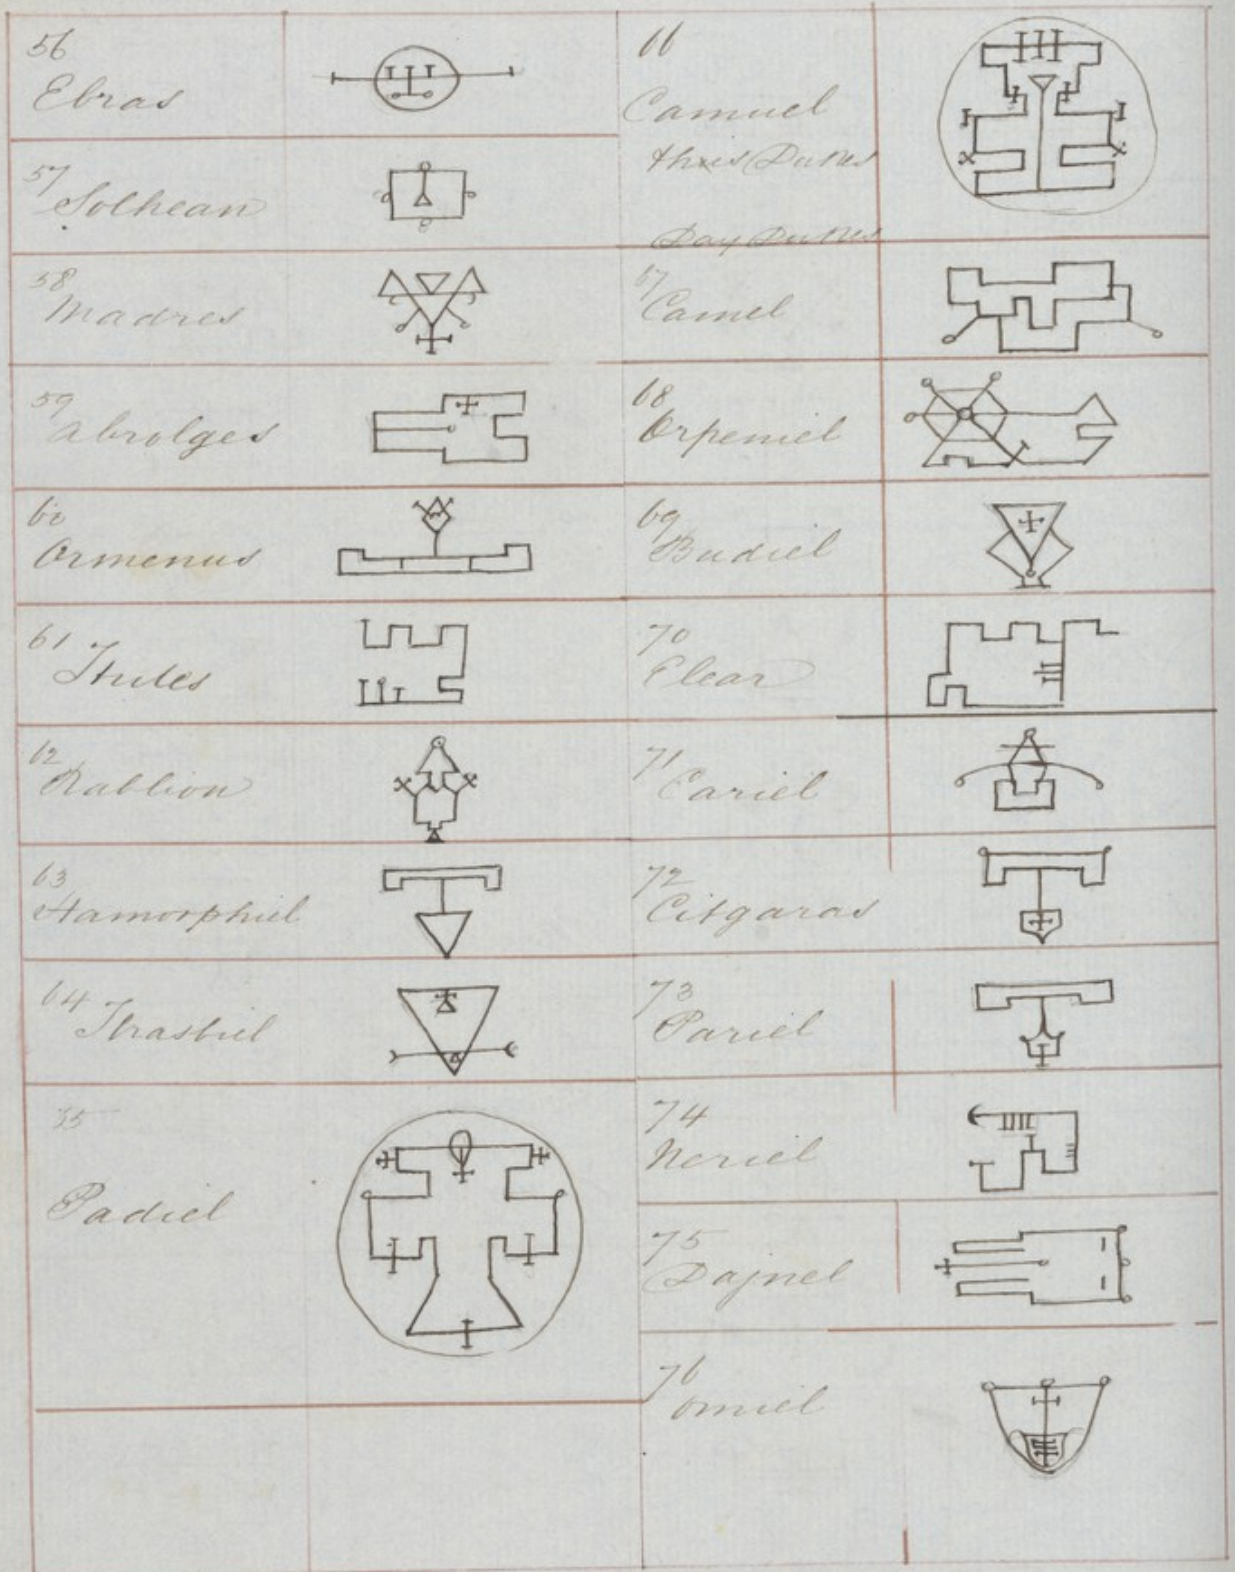 56
Ebras
57
Solhean
58
Madres
59
Abrolges
60
Ormenus
61
Itules
62
Rablion
63
Hamorphiel
64
Itrasbiel
Padiel
66
Camuel
Day Dukes
67
Camel
68
Orpeniel
69
Budiel
70
Elcar
71
Cariel
72
Citgaras
73
Pariel
74
Neriel
75
Dajnel
76
Omiel